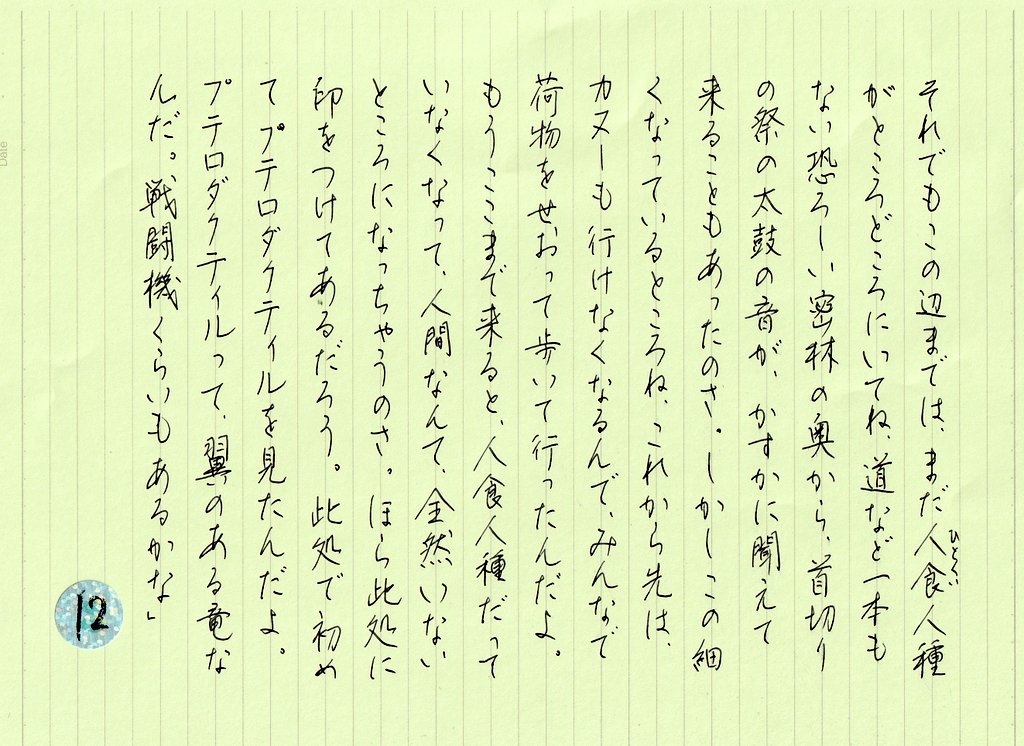 それでもこの辺までは、まだ人食人種
ひとくい
がところどころにいてね、道など一本も
ない恐ろしい密林の奥から、首切り
の祭の太鼓の音が、かすかに聞えて
来ることもあったのさ。しかしこの細
くなっているところね、これから先は、
カヌーも行けなくなるんで、みんなで
荷物をせおって歩いて行ったんだよ。
もうここまで来ると、人食人種だって
いなくなって、人間なんて、全然いない
ところになっちゃうのさ。ほら此処に
印をつけてあるだろう。此処で初め
てプテロダクティルを見たんだよ。
プテロダクティルって、翼のある竜な
んだ。戦闘機くらいもあるかな」
12
Date